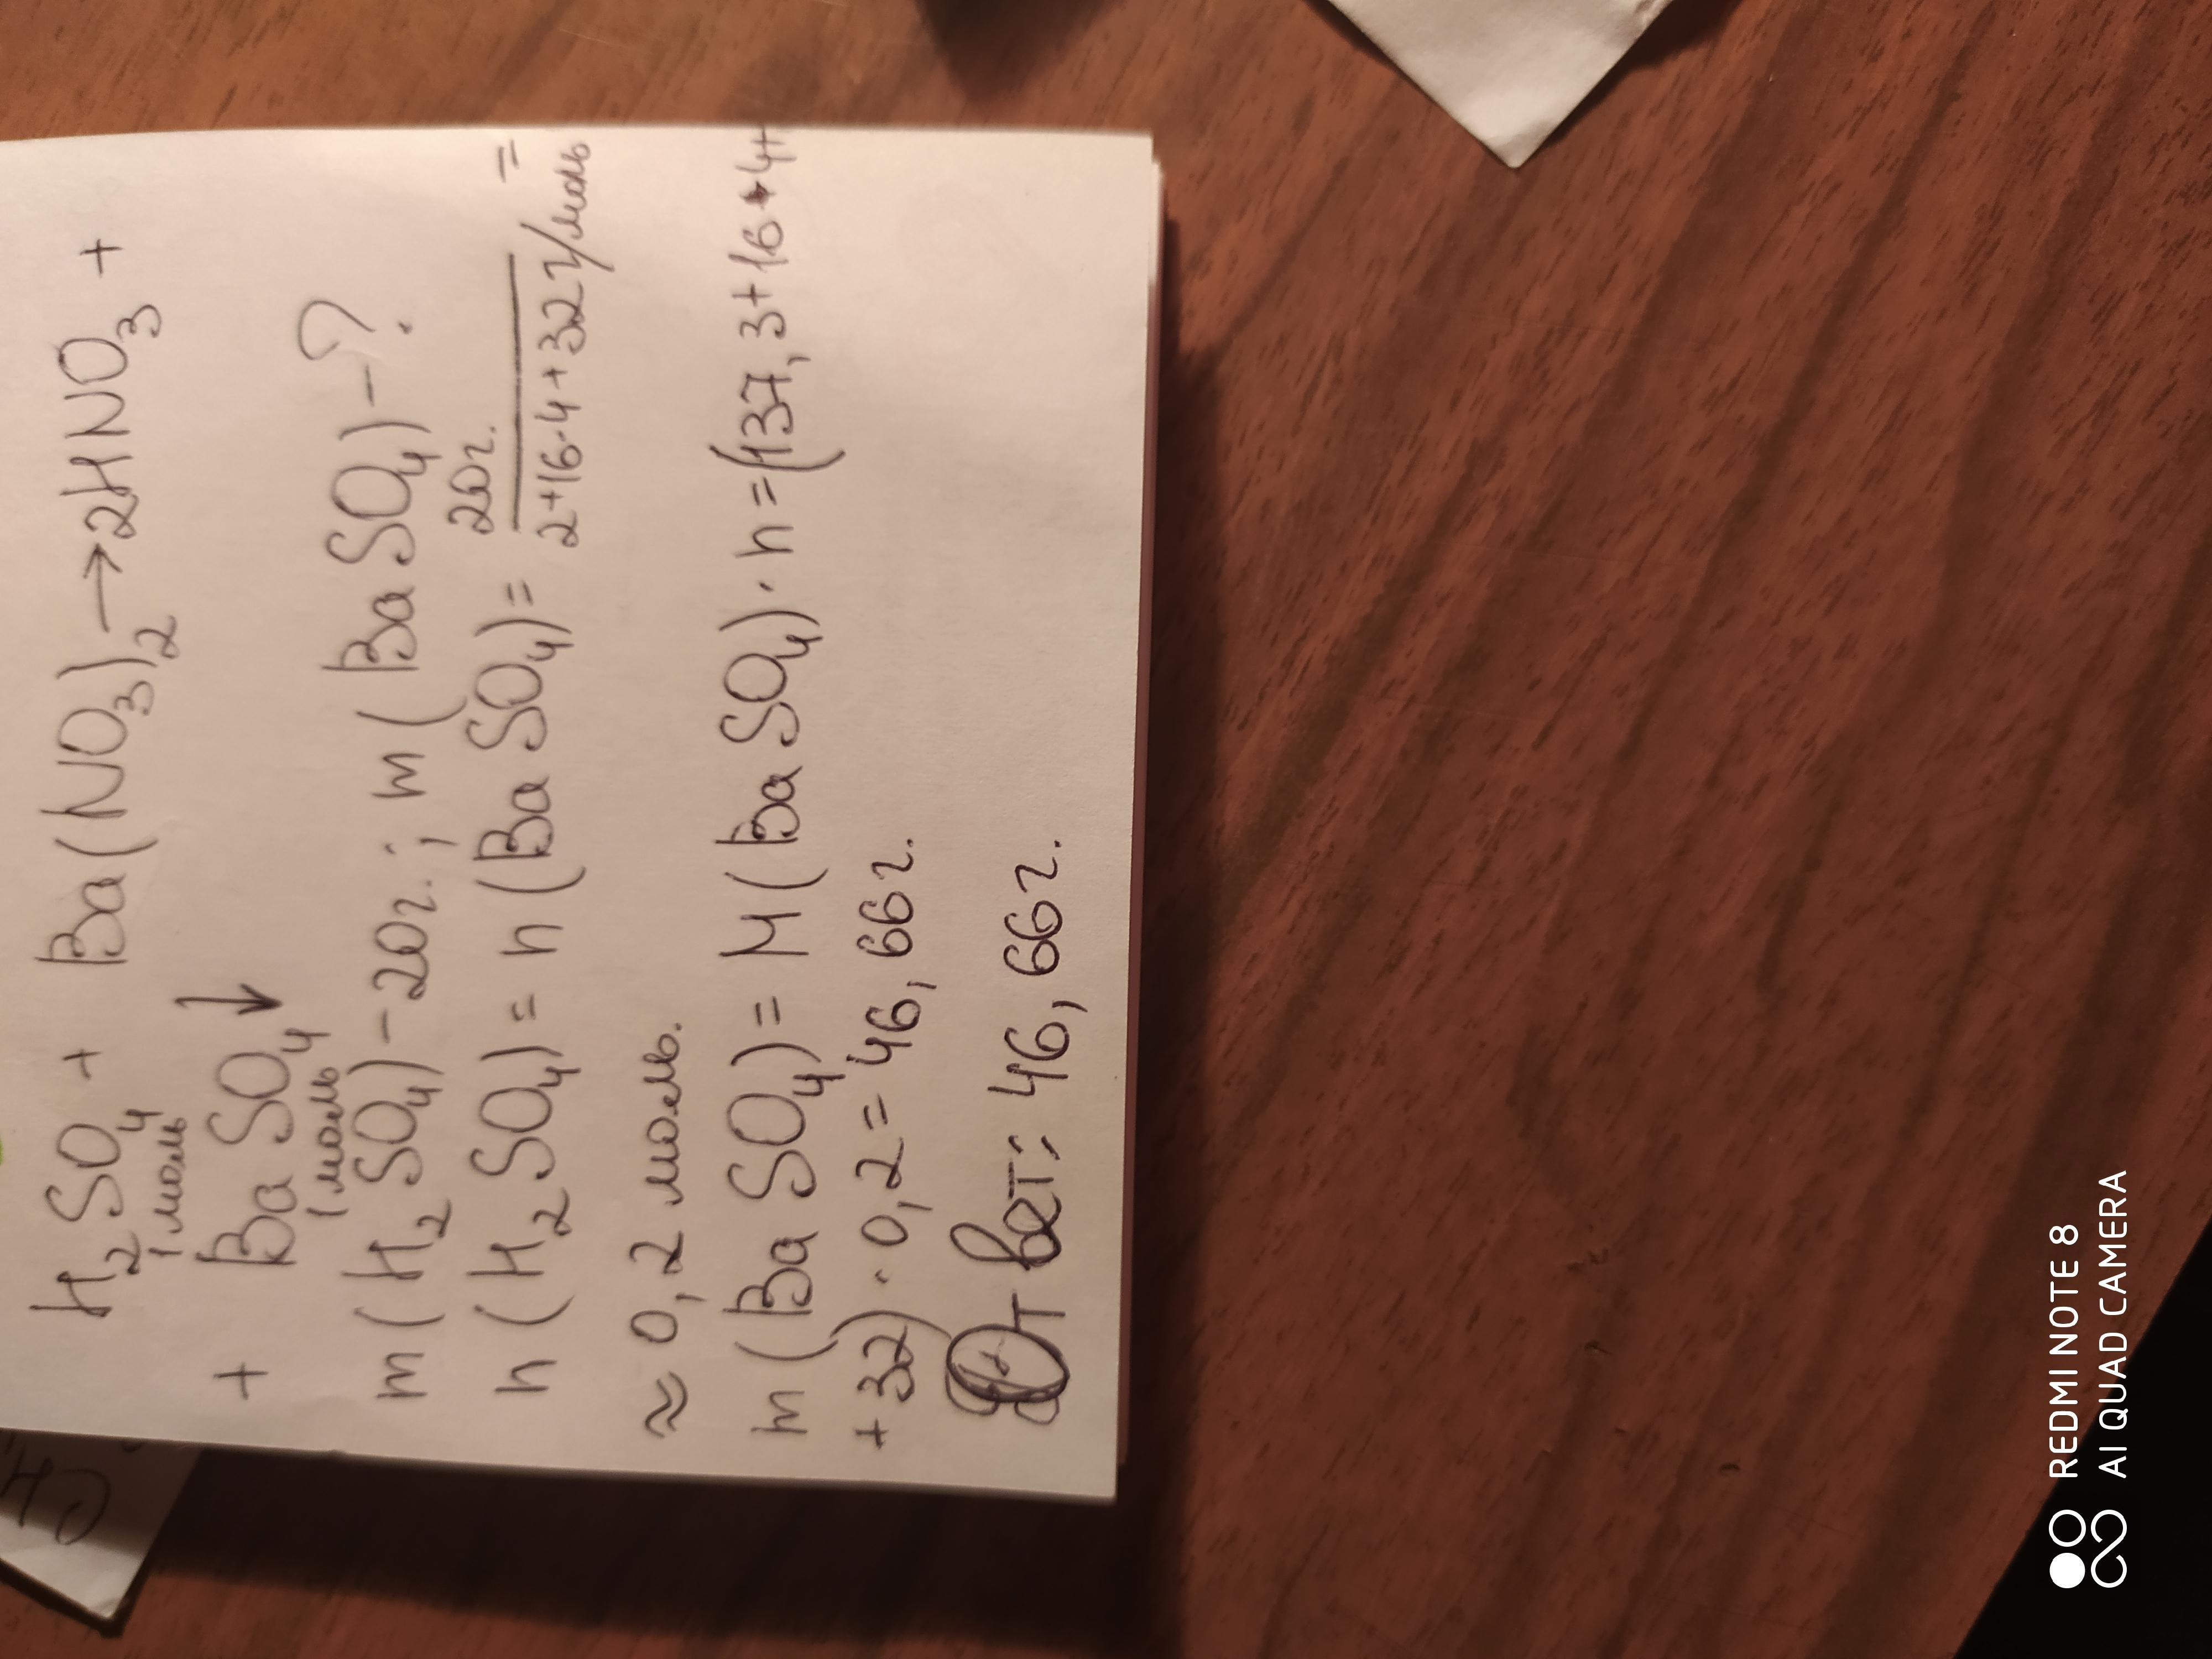 H₂SO₄ + Ba(NO₃)₂ → 2HNO₃ +
1 моль
+ BaSO₄↓
1 моль
m(H₂SO₄) – 20г. ; m(BaSO₄) – ?
n(H₂SO₄) = n(BaSO₄) = 20г. / 2+16·4+32 г/моль =
≈ 0,2 моль.
m(BaSO₄) = M(BaSO₄) · n = (137,3+16·4+
+32) · 0,2 = 46,66г.
Ответ: 46,66г.
REDMI NOTE 8
AI QUAD CAMERA